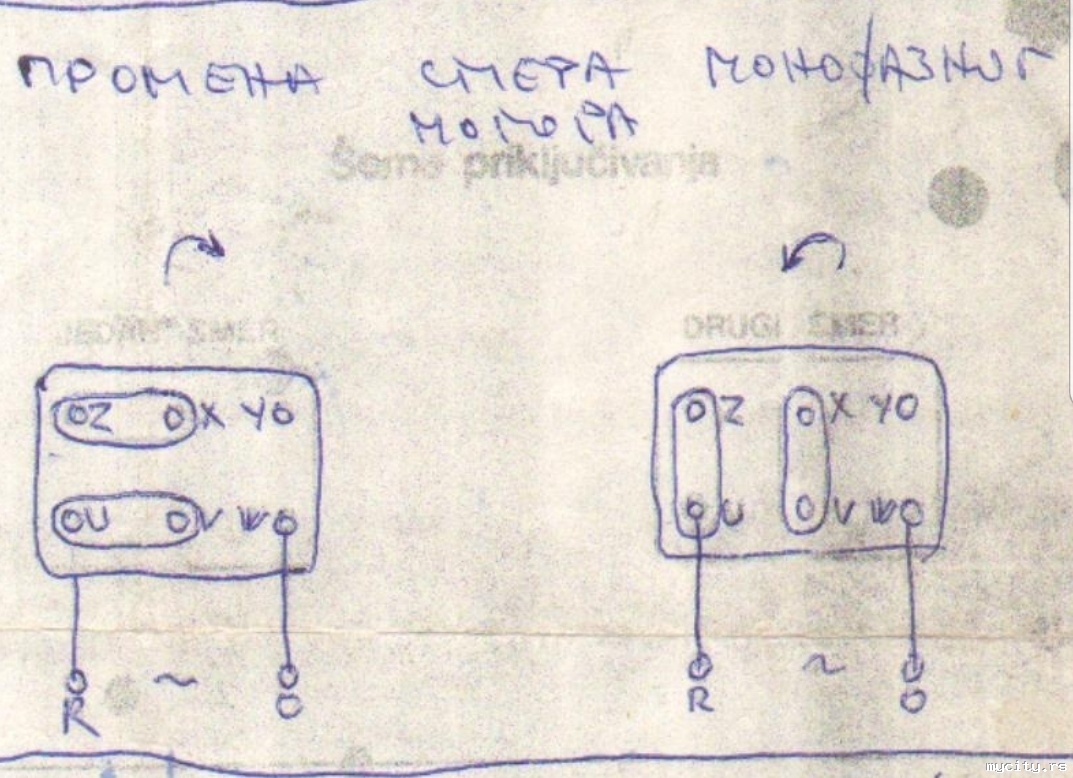 ПРОМЕНА СМЕРА МОНОФАЗНОГ
МОТОРА
Šema priključivanja
JEDAN SMER
DRUGI SMER
Z X Y
U V W
R ~ O
Z X Y
U V W
R ~ O
mycity.rs